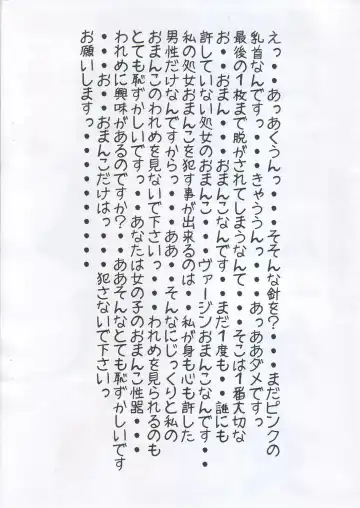 えっ・・あっあくうんっ・・・そそんな針を？・・・まだピンクの
乳首なんですっ・・・きゃううんっ・・・あっああダメですっ
最後の1枚まで脱がされてしまうなんて・・・そこは1番大切な
お・・おまん・・・おまんこなんです・・まだ1度も・・誰にも
許していない処女のおまんこ・・・ヴァージンおまんこなんです・・
私の処女おまんこを犯す事が出来るのは・・私が身も心も許した
男性だけなんですからっ・・・ああ・・そんなにじっくりと私の
おまんこのわれめを見ないで下さいっ・・われめを見られるのも
とても恥ずかしいです・・・あなたは女の子のおまんこ性器・・・
われめに興味があるのですか？・・ああそんなとても恥ずかしいです
・・・お・・おまんこだけはっ・・・・犯さないで下さいっ
お願いしますっ・・・・・・・